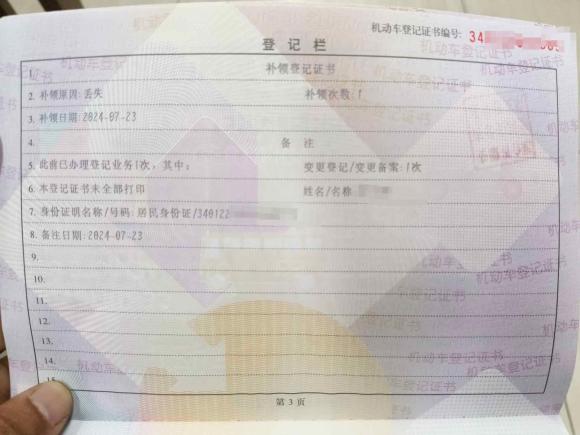 机动车登记证书编号: 34
登记栏
1. 补领登记证书
2. 补领原因:丢失 补领次数:1
3. 补领日期:2024-07-23
4. 备 注
5. 此前已办理登记业务1次，其中: 变更登记/变更备案:1次
6. 本登记证书未全部打印 姓名/名称
7. 身份证明名称/号码:居民身份证/340122
8. 备注日期:2024-07-23
9.
10.
11.
12.
13.
14.
第 3 页
机动车登记证书
机动车登记证书
机动车登记证书
机动车登记证书